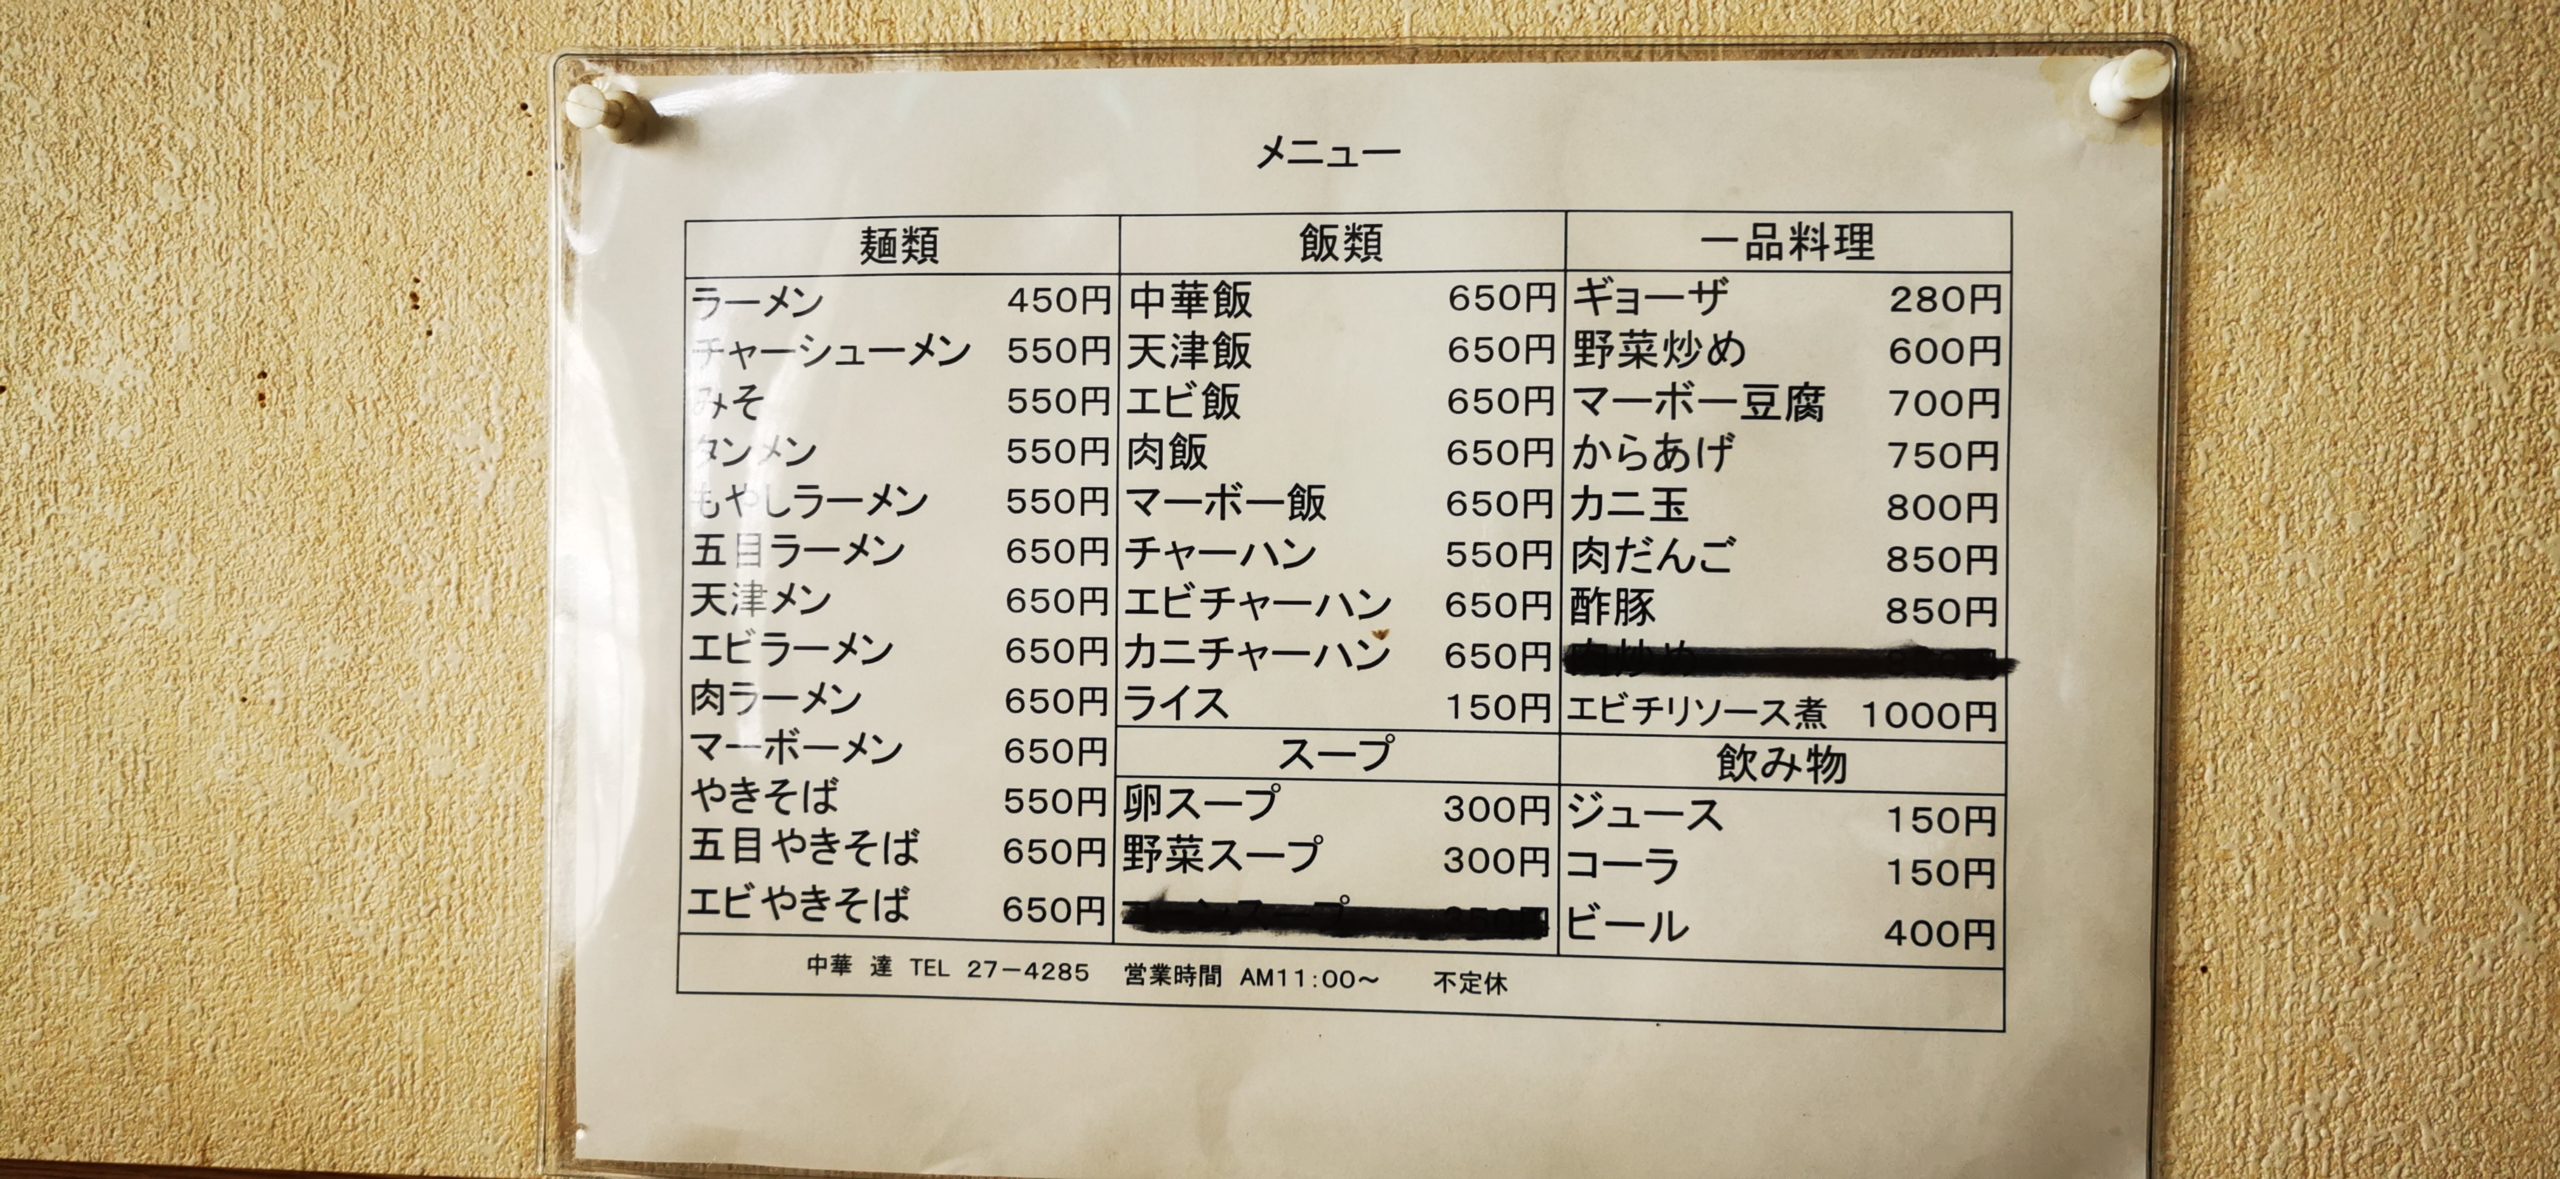 メニュー
麺類
ラーメン 450円
チャーシューメン 550円
みそ 550円
タンメン 550円
もやしラーメン 550円
五目ラーメン 650円
天津メン 650円
エビラーメン 650円
肉ラーメン 650円
マーボーメン 650円
やきそば 550円
五目やきそば 650円
エビやきそば 650円
飯類
中華飯 650円
天津飯 650円
エビ飯 650円
肉飯 650円
マーボー飯 650円
チャーハン 550円
エビチャーハン 650円
カニチャーハン 650円
ライス 150円
スープ
卵スープ 300円
野菜スープ 300円
コーンスープ 350円
一品料理
ギョーザ 280円
野菜炒め 600円
マーボー豆腐 700円
からあげ 750円
カニ玉 800円
肉だんご 850円
酢豚 850円
肉炒め
エビチリソース煮 1000円
飲み物
ジュース 150円
コーラ 150円
ビール 400円
中華 達 TEL 27-4285 営業時間 AM11:00～ 不定休